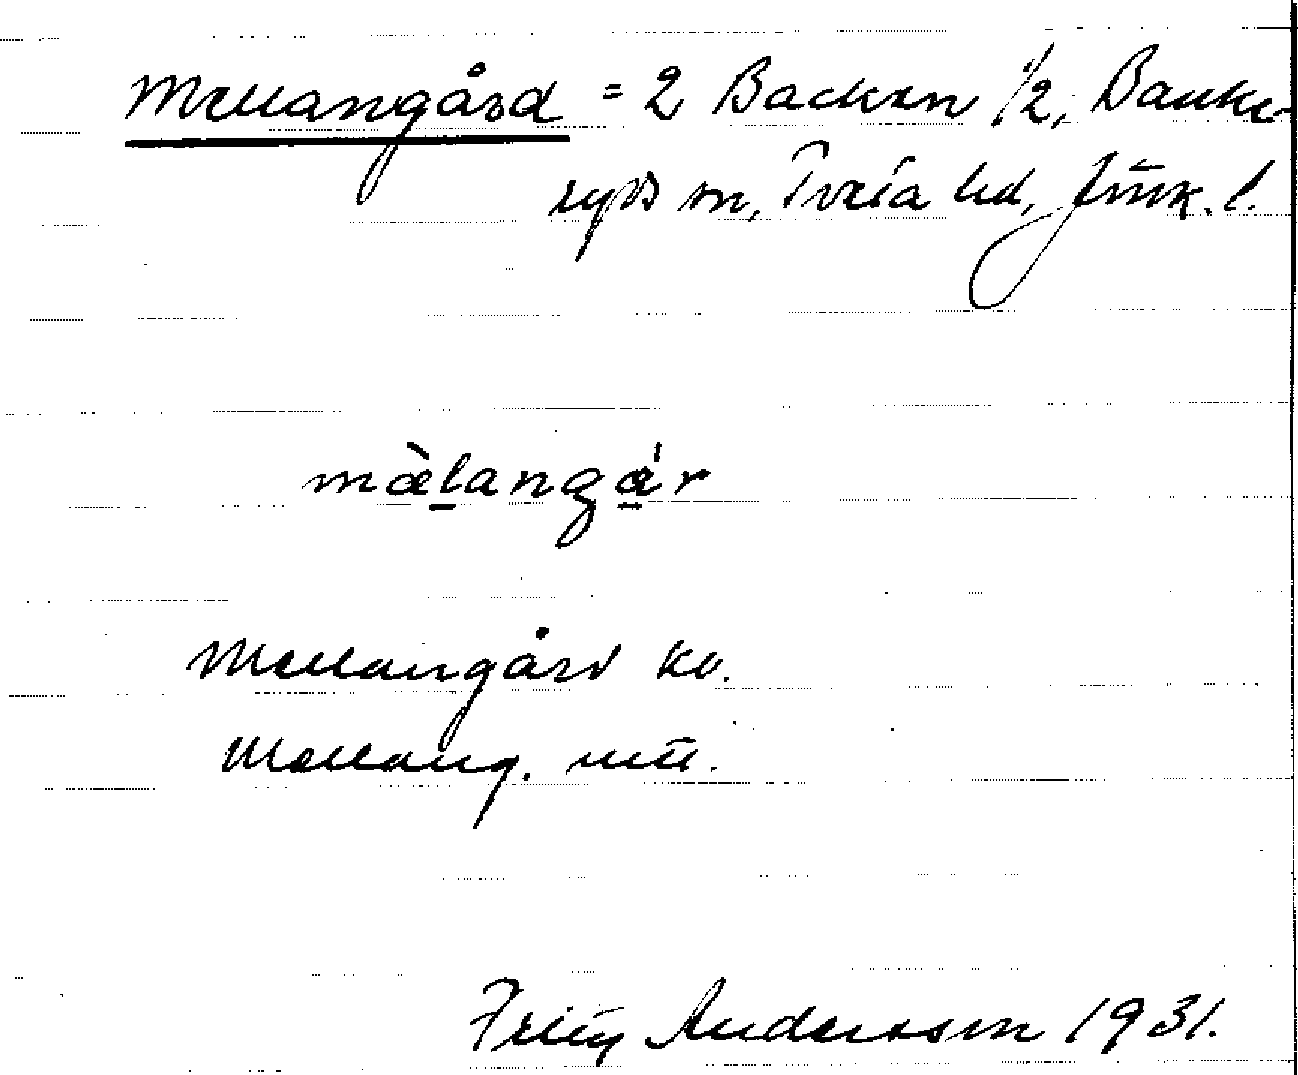 Mellangård = 2 Backen 1/2, Banke-
ryds sn, Tveta hd, Jönk. l.
mæ̀langá̱r
Mellangård kv.
Mellang.
Fritz Andersson 1931.